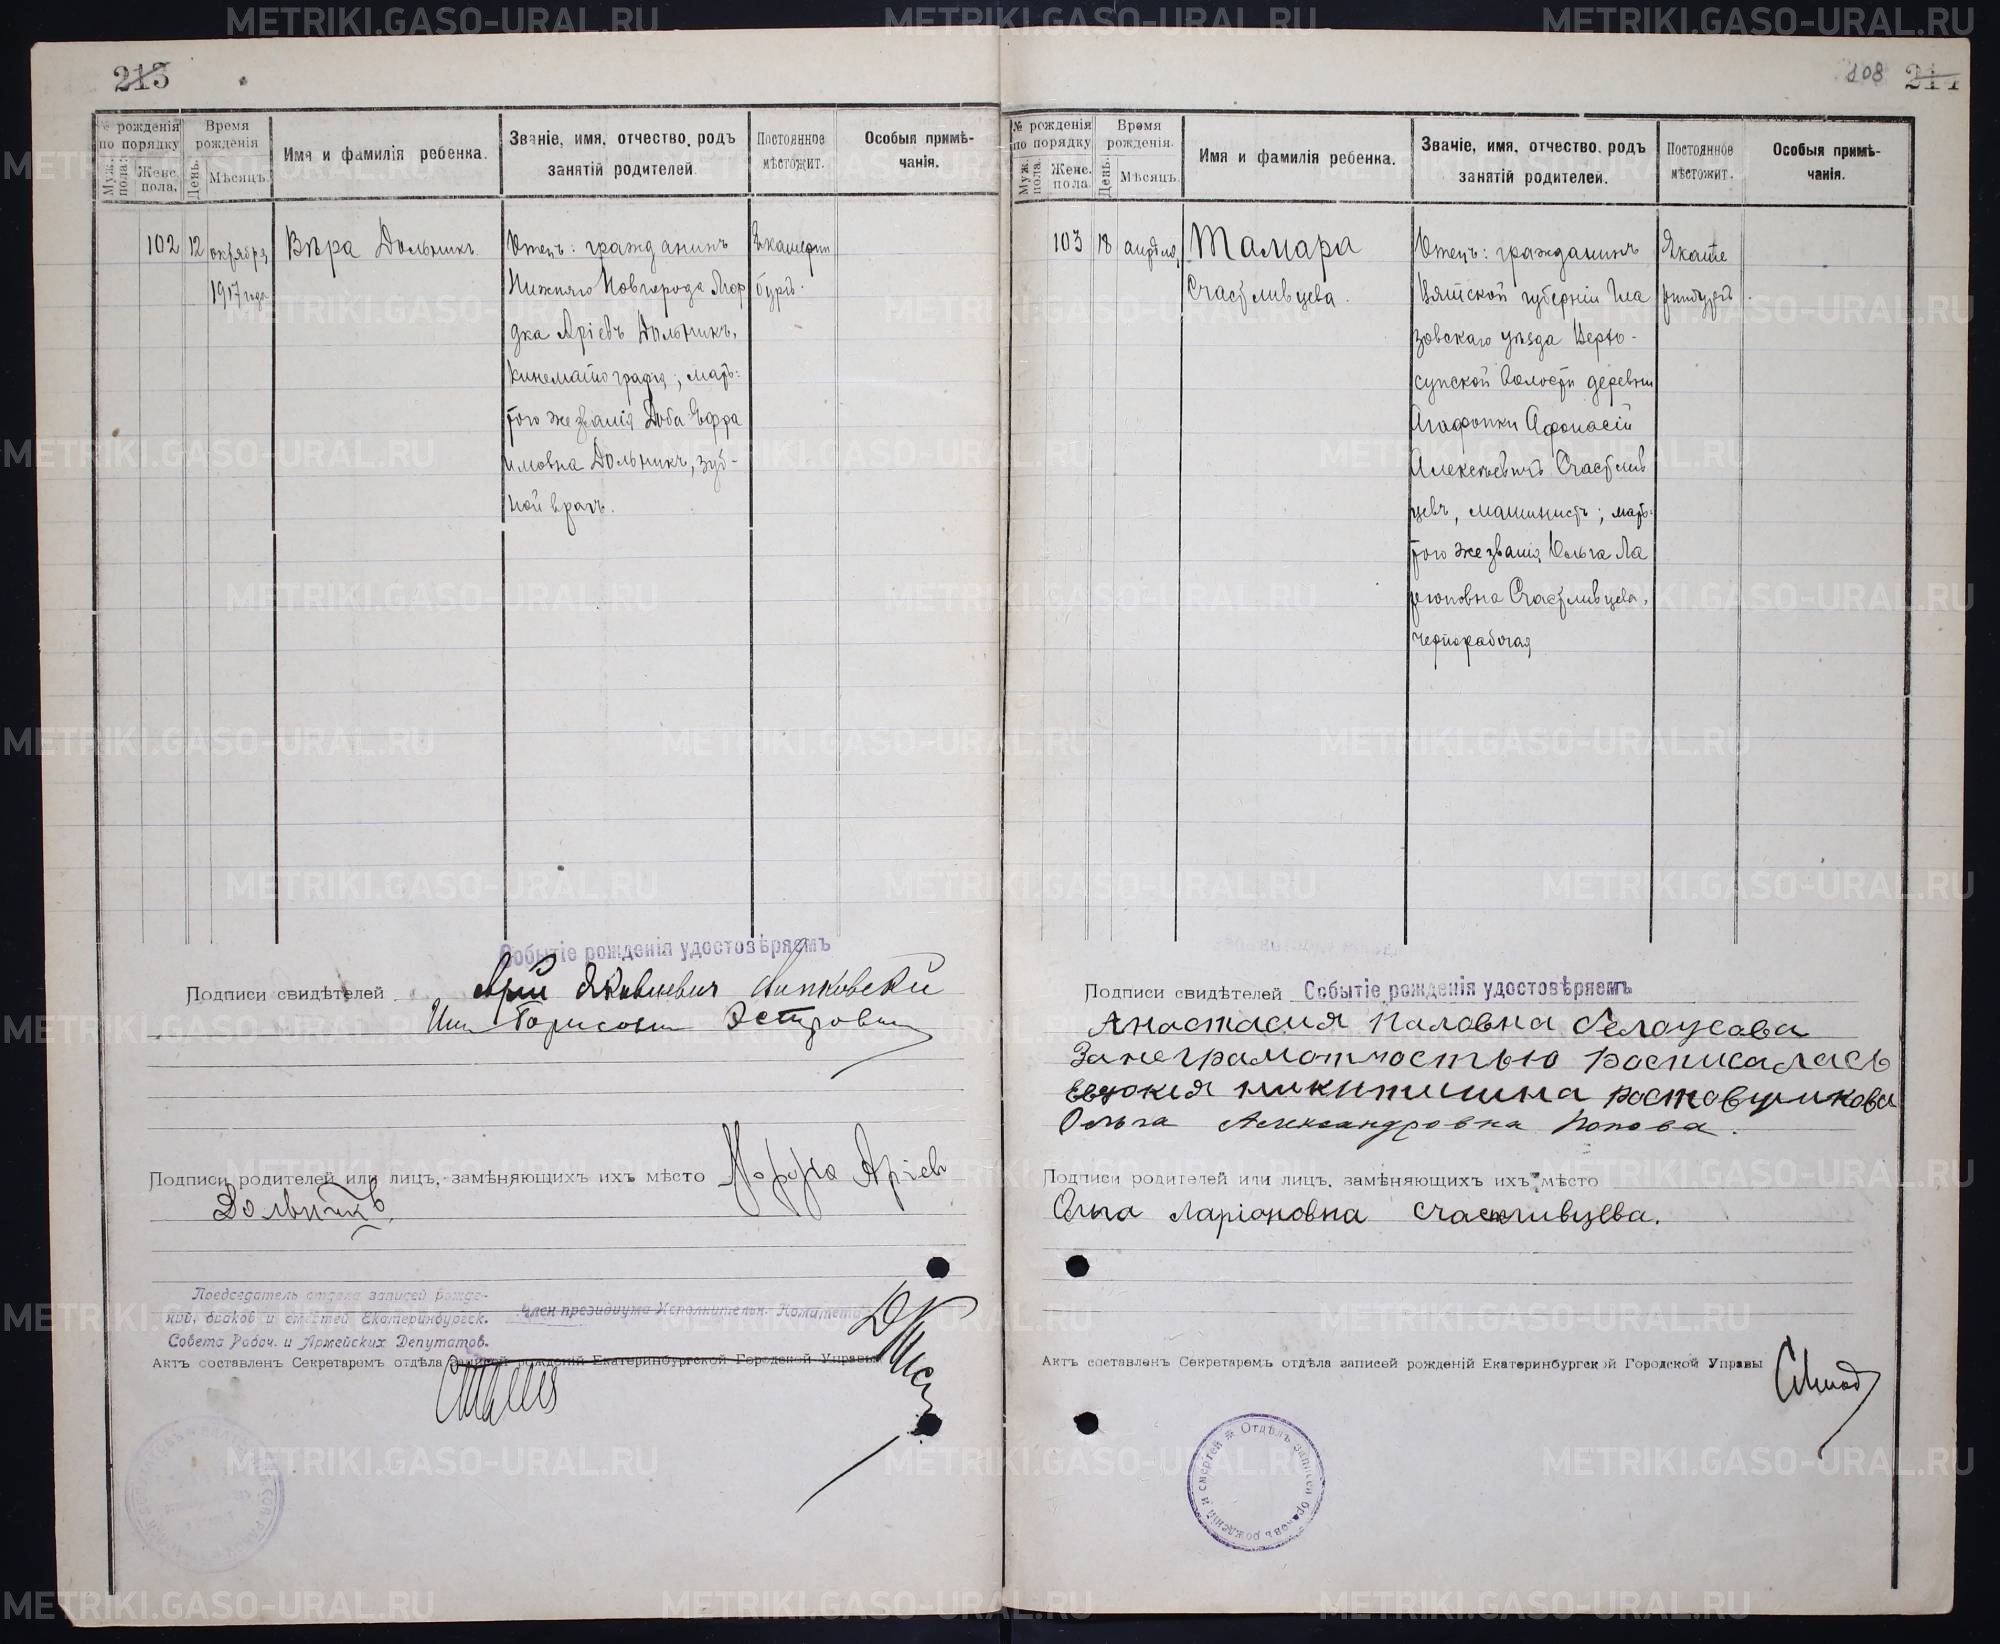 213
№ рожденія по порядку
Муж. пола.
Женс. пола.
Время рожденія
День.
Мѣсяцъ.
Имя и фамилія ребенка.
Званіе, имя, отчество, родъ занятій родителей.
Постоянное мѣстожит.
Особыя примѣчанія.
102 12 октября
1917 года
Вѣра Дольникъ
Отецъ: гражданинъ
Нижняго Новгорода Мор
дка Аріевъ Дольникъ,
кинематографъ; мать:
того же званія Доба Ефра
имовна Дольникъ, зуб-
ной врачъ.
Екатерин
бургъ.
Событіе рожденія удостовѣряемъ
Подписи свидѣтелей
Яковлевич
Подписи родителей или лицъ, замѣняющихъ ихъ мѣсто Мордка Аріевъ
Дольникъ
Председатель отдела записей рожде-
ний, браков и смертей Екатеринбургск.
Совета Рабоч. и Армейских Депутатов.
Член президиума Исполнительн. Комитета
Актъ составленъ Секретаремъ отдѣла записей рожденій Екатеринбургской Городской Управы
108 214
№ рожденія по порядку
Муж. пола.
Женс. пола.
Время рожденія.
День.
Мѣсяцъ.
Имя и фамилія ребенка.
Званіе, имя, отчество, родъ занятій родителей.
Постоянное мѣстожит.
Особыя примѣчанія.
103 18 апрѣля
Тамара
Счастливцева.
Отецъ: гражданинъ
Вятской губерніи Гла
зовскаго уѣзда
волости деревни
Агафонки Афонасій
Алексѣевичъ Счастлив
цевъ, машинистъ; мать:
того же званія Ольга Ла
ріоновна Счастливцева,
чернорабочая
Екате
ринбургъ
Подписи свидѣтелей Событіе рожденія удостовѣряемъ
Анастасия Паловна Белоусова
Занеграмотностью росписалась
Евдокия Никитишна Ростовщикова
Ольга Александровна Попова.
Подписи родителей или лицъ, замѣняющихъ ихъ мѣсто
Ольга Ларіоновна Счастливцева.
Актъ составленъ Секретаремъ отдѣла записей рожденій Екатеринбургской Городской Управы
Отдѣлъ записей браковъ рожденій и смертей
METRIKI.GASO-URAL.RU